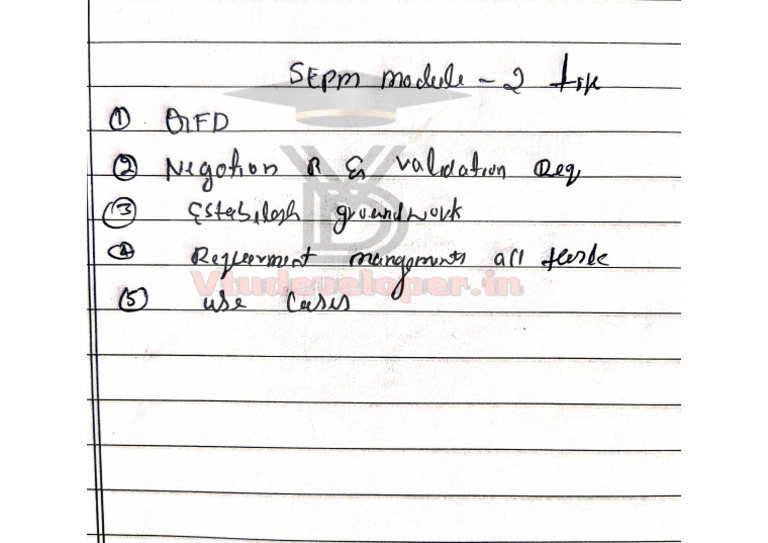 SEPM module - 2
① QFD
② Negotion R & validation Req
③ Establish groundwork
④ Requerment mangements all task
⑤ use cases
Vtudeveloper.in